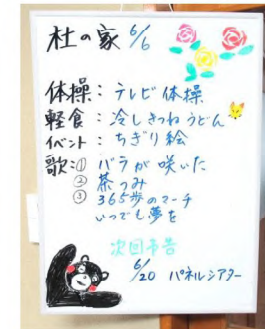 杜の家 6/6
体操：テレビ体操
軽食：冷しきつねうどん
イベント：ちぎり絵
歌：① バラが咲いた
② 茶つみ
③ 365歩のマーチ
いつでも夢を
次回予告
6/20 パネルシアター